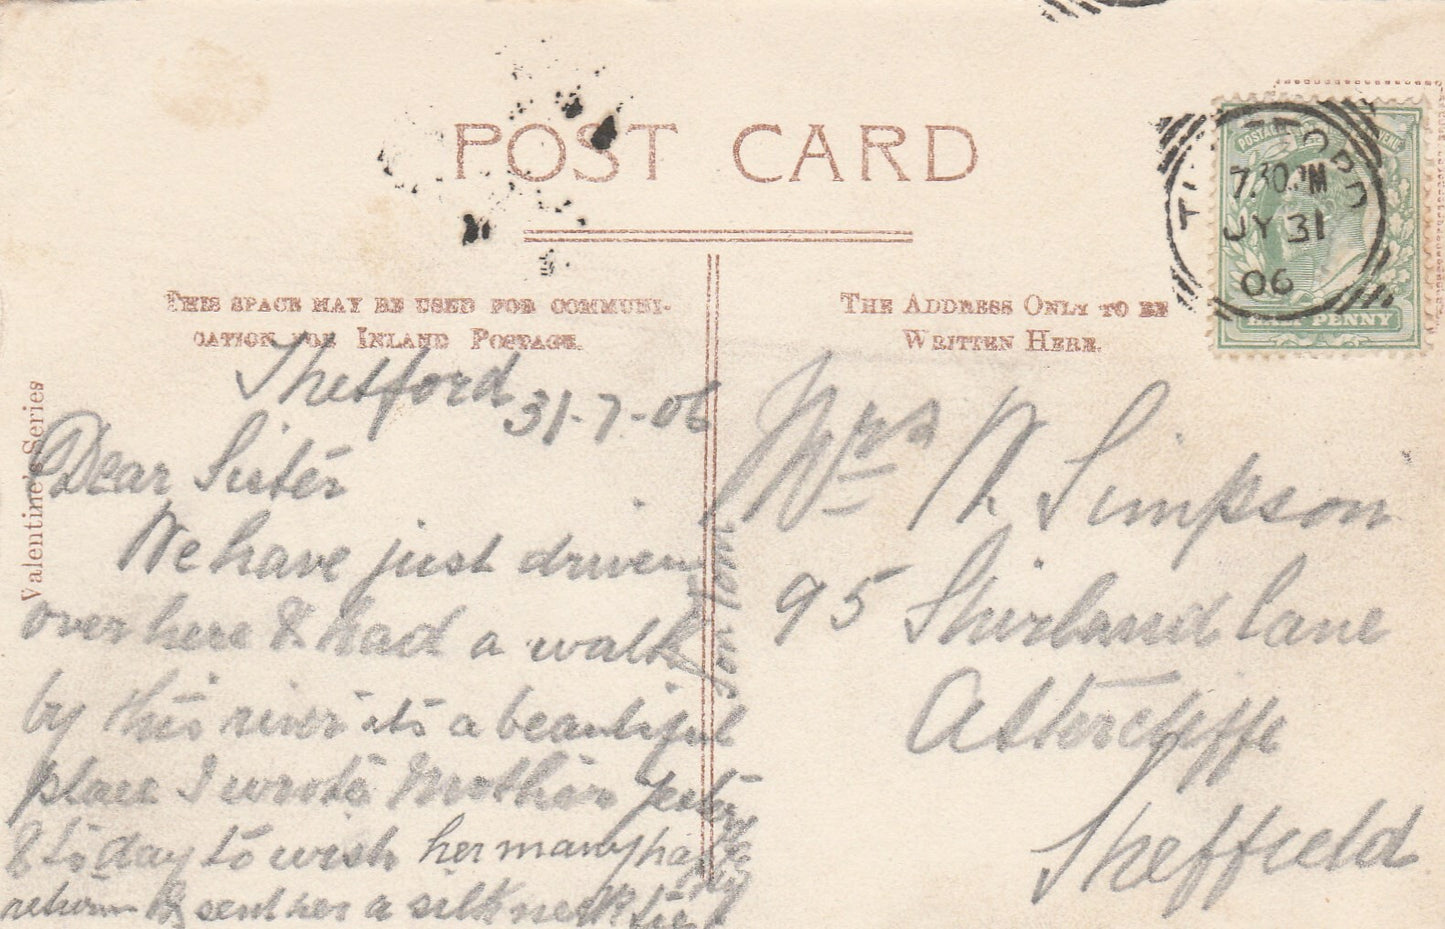 POST CARD
THIS SPACE MAY BE USED FOR COMMUNI-
CATION FOR INLAND POSTAGE.
THE ADDRESS ONLY TO BE
WRITTEN HERE.
Valentine's Series
THETFORD
7.30 PM
JY 31
06
HALF PENNY
Thetford
31-7-06
Dear Sister
We have just driven
over here & had a walk
by this river its a beautiful
place I wrote Mother
& to day to wish her many happy
return & sent her a silk neck tie
from Tom
Mrs W Simpson
95 Shirland Lane
Attercliffe
Sheffield